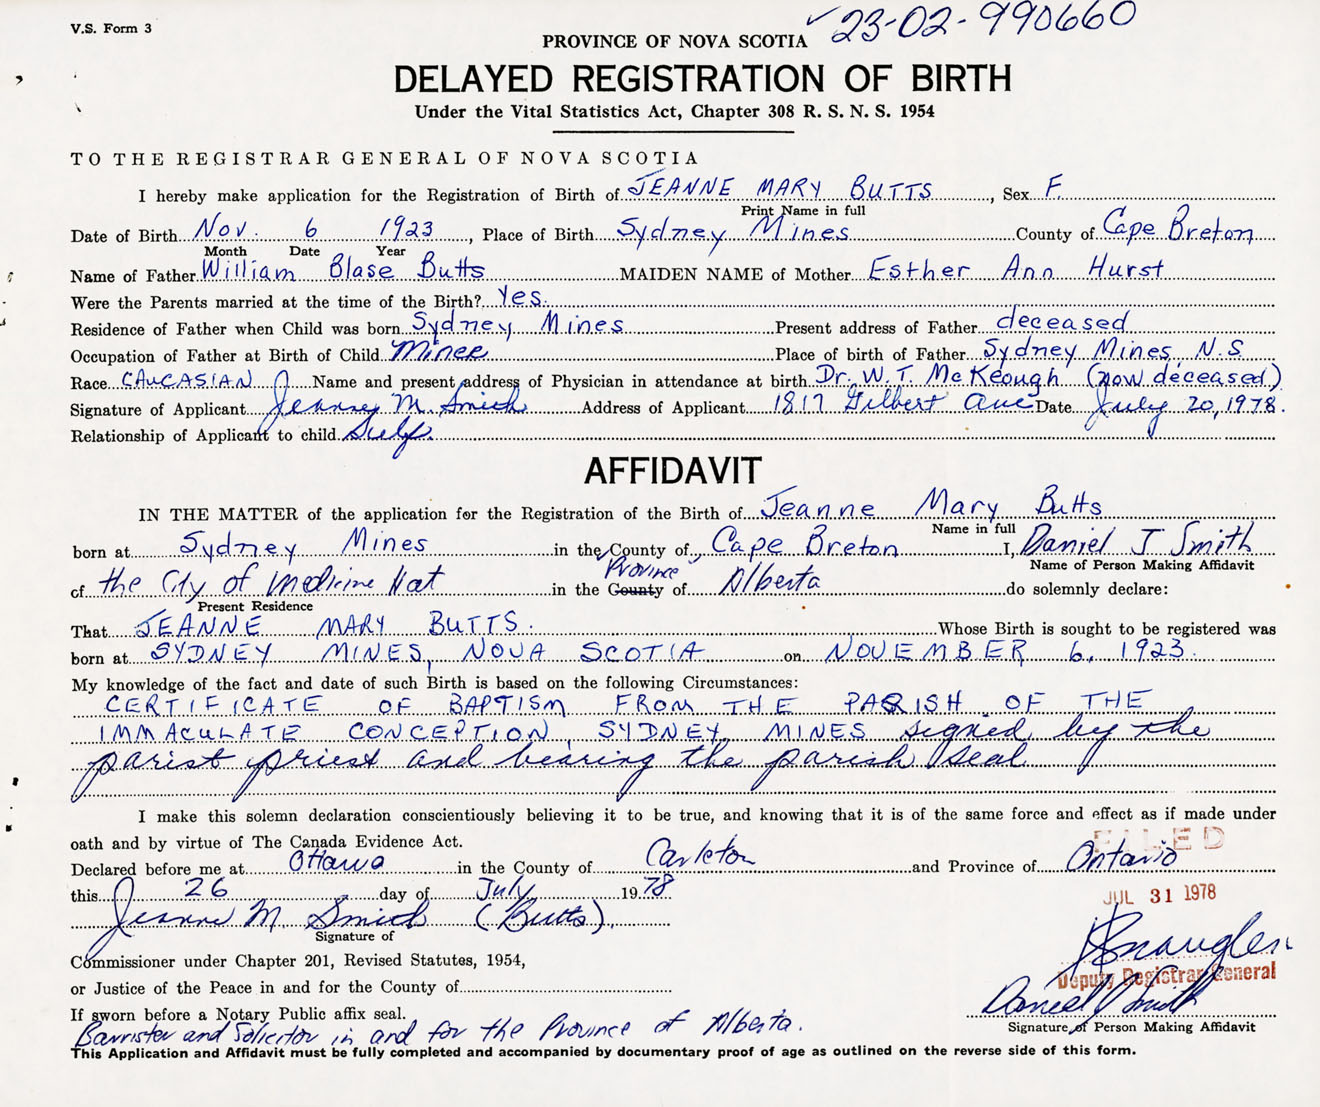 V.S. Form 3
✓23-02-990660
PROVINCE OF NOVA SCOTIA
DELAYED REGISTRATION OF BIRTH
Under the Vital Statistics Act, Chapter 308 R. S. N. S. 1954
TO THE REGISTRAR GENERAL OF NOVA SCOTIA
I hereby make application for the Registration of Birth of JEANNE MARY BUTTS, Sex F.
Print Name in full
Date of Birth Nov. 6 1923, Place of Birth Sydney Mines County of Cape Breton
Month Date Year
Name of Father William Blase Butts MAIDEN NAME of Mother Esther Ann Hurst
Were the Parents married at the time of the Birth? Yes.
Residence of Father when Child was born Sydney Mines Present address of Father deceased
Occupation of Father at Birth of Child Miner Place of birth of Father Sydney Mines N.S.
Race CAUCASIAN Name and present address of Physician in attendance at birth Dr. W.T. McKeough (now deceased)
Signature of Applicant Jeanne M. Smith Address of Applicant 1817 Gilbert Ave Date July 20, 1978.
Relationship of Applicant to child Self.
AFFIDAVIT
IN THE MATTER of the application for the Registration of the Birth of Jeanne Mary Butts
Name in full
born at Sydney Mines in the County of Cape Breton I, Daniel J Smith
Name of Person Making Affidavit
Province
of the City of Medicine Hat in the County of Alberta do solemnly declare:
Present Residence
That JEANNE MARY BUTTS. Whose Birth is sought to be registered was
born at SYDNEY MINES, NOVA SCOTIA on NOVEMBER 6, 1923.
My knowledge of the fact and date of such Birth is based on the following Circumstances:
CERTIFICATE OF BAPTISM FROM THE PARISH OF THE
IMMACULATE CONCEPTION, SYDNEY MINES signed by the
parist priest and bearing the parish seal
I make this solemn declaration conscientiously believing it to be true, and knowing that it is of the same force and effect as if made under
oath and by virtue of The Canada Evidence Act.
FILED
Declared before me at Ottawa in the County of Carleton and Province of Ontario
this 26 day of July 1978
JUL 31 1978
Jeanne M. Smith (Butts)
Signature of
Commissioner under Chapter 201, Revised Statutes, 1954,
Deputy Registrar General
or Justice of the Peace in and for the County of
Daniel J Smith
If sworn before a Notary Public affix seal.
Signature of Person Making Affidavit
Barrister and Solicitor in and for the Province of Alberta.
This Application and Affidavit must be fully completed and accompanied by documentary proof of age as outlined on the reverse side of this form.